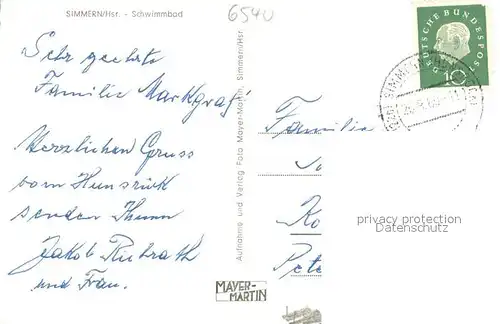 SIMMERN/Hsr. - Schwimmbad
6540
Sehr geehrte
Familie Markgraf!
Herzlichen Gruss
vom Hunsrück
senden Ihnen
Jakob Rubrath
und Frau.
Aufnahme und Verlag Foto Mayer-Martin, Simmern/Hsr.
MAYER-
MARTIN
DEUTSCHE BUNDESPOST
10
SIMMERN
Familie
Ko
Pete
privacy protection
Oldthing